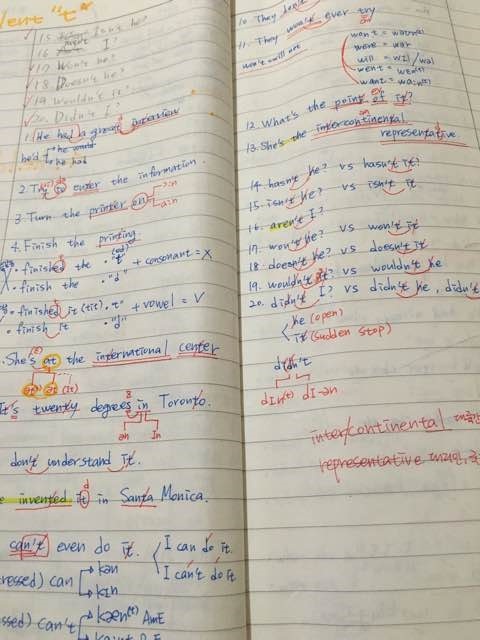 lent "t"
15 isn't he?
16 aren't I?
17 Won't he?
18 Doesn't he?
19 Wouldn't it?
20. Didn't I?
1. He had a great interview
he'd he would
he had
2. Try to enter the information.
3. Turn the printer on
4. Finish the printing.
finished the "t" + consonant = X
finish the "d"
finished it (tit) "t" + vowel = V
finish it "d"
She's at the international center
It's twenty degrees in Toronto.
ən In
don't understand it.
e invented it in Santa Monica.
can't even do it. I can do it.
I can't do it
ressed) can kən
kIn
ssed) can't kæn(t) AmE
10. They don't
11. They won't ever try
won't will not
won't = won(t)
were = wər
will = wIl/wəl
went = wɛn(t)
12. What's the point of it?
13. She's the intercontinental
representative
14. hasn't he? vs hasn't it?
15. isn't he? vs isn't it
16. aren't I?
17. won't he? vs won't it
18. doesn't he? vs doesn't it
19. wouldn't it? vs wouldn't he
20. didn't I? vs didn't he, didn't
he (open)
it (sudden stop)
didn't
dIn(t) dI-ən
intercontinental
representative 대리인,